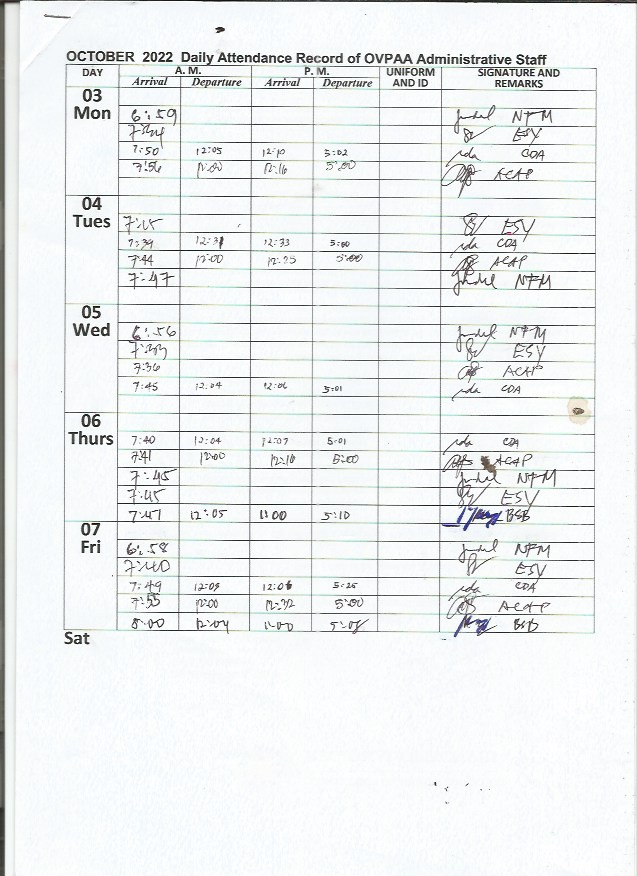 OCTOBER 2022 Daily Attendance Record of OVPAA Administrative Staff
DAY A. M. P. M. UNIFORM AND ID SIGNATURE AND REMARKS
Arrival Departure Arrival Departure
03 Mon
6:59 NFM
ESY
7:50 12:05 12:10 5:02 CDA
7:56 12:00 12:16 5:00 ACAP
04 Tues
7:15 ESY
7:39 12:31 12:33 5:00 CDA
7:44 12:00 12:25 5:00 ACAP
7:47 NFM
05 Wed
6:56 NFM
7:33 ESY
7:36 ACAP
7:45 12:04 12:06 5:01 CDA
06 Thurs
7:40 12:04 12:07 5:01 CDA
7:41 12:00 12:16 5:00 ACAP
7:45 NFM
7:45 ESY
7:47 12:05 1:00 5:10 BSB
07 Fri
6:58 NFM
7:40 ESY
7:49 12:05 12:06 5:25 CDA
7:55 12:00 12:32 5:00 ACAP
8:00 12:04 1:00 5:08 BSB
Sat